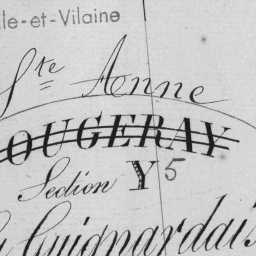 lle-et-Vilaine
Ste Anne
OUGERAY
Section Y5
Guignardais